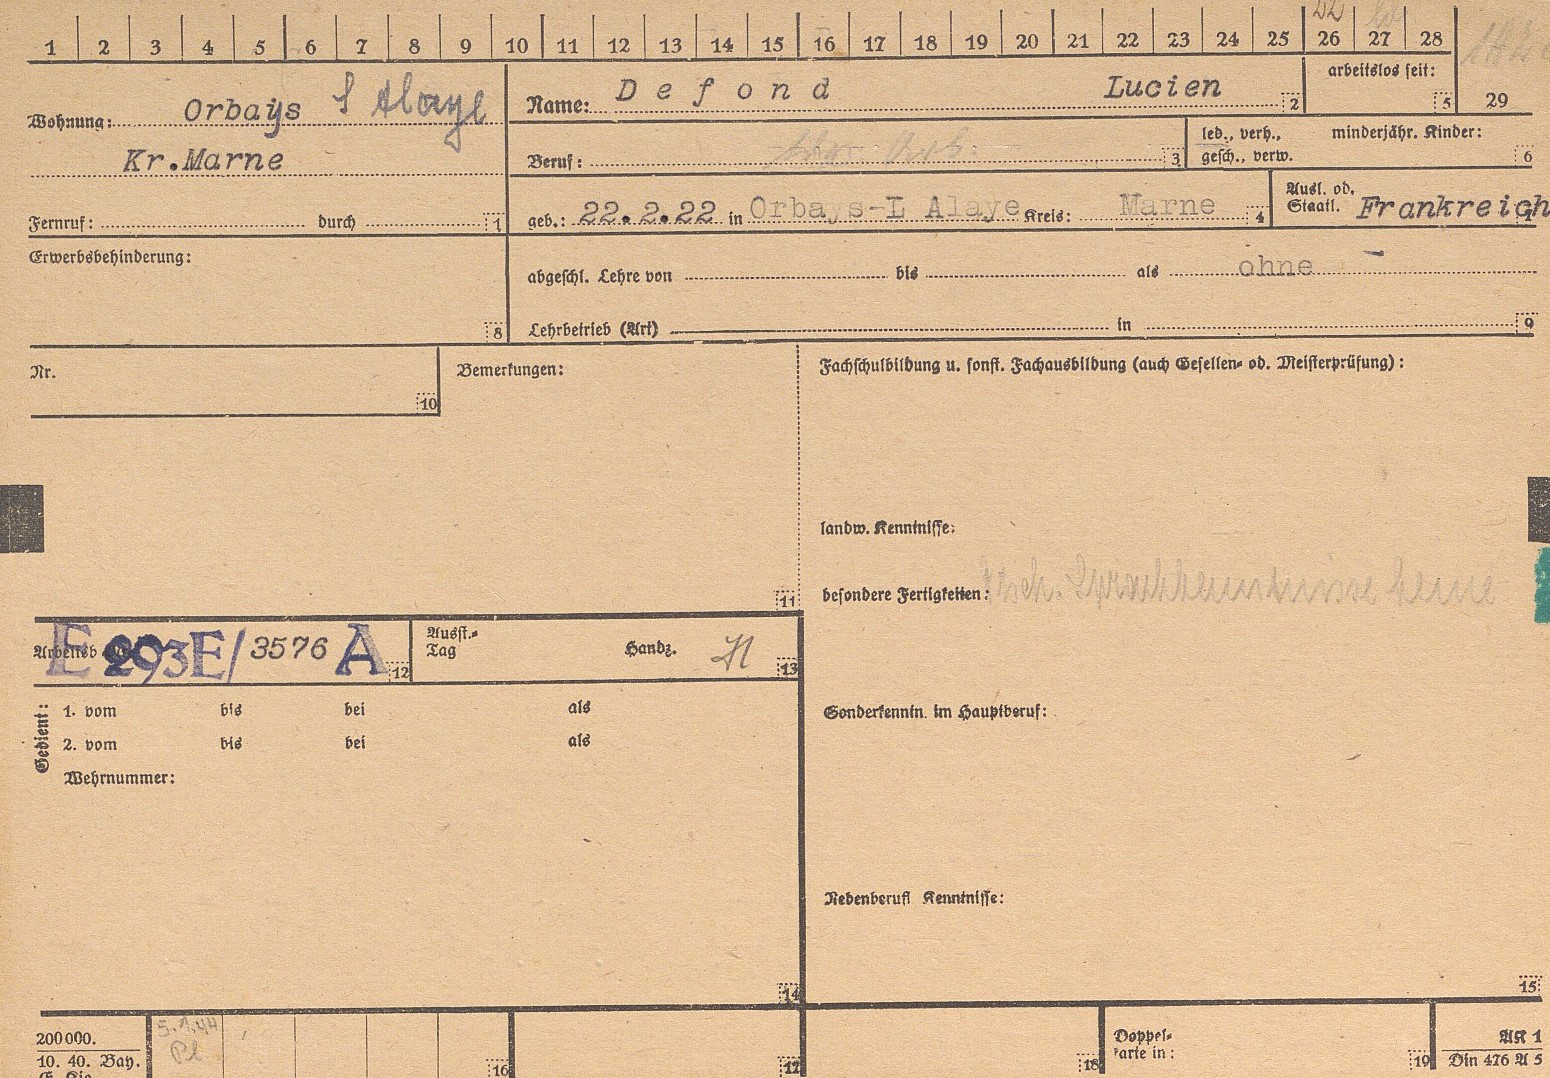 1 2 3 4 5 6 7 8 9 10 11 12 13 14 15 16 17 18 19 20 21 22 23 24 25 26 27 28
22
Wohnung: Orbays l Alaye
Kr.Marne
Fernruf: durch 1
Name: Defond Lucien 2
arbeitslos seit: 5
29
Beruf: 3
led., verh., gesch., verw.
minderjähr. Kinder: 6
geb.: 22.2.22 in Orbays-L Alaye Kreis: Marne 4
Ausl. od.
Staatl. Frankreich
Erwerbsbehinderung: 8
abgeschl. Lehre von bis als ohne
Lehrbetrieb (Art) in 9
Nr. 10
Bemerkungen: 11
Fachschulbildung u. sonst. Fachausbildung (auch Gesellen- od. Meisterprüfung):
landw. Kenntnisse:
besondere Fertigkeiten: Dtsch. Sprachkenntnisse keine
E 293E/3576 A 12
Ausst.-
Tag
Handz. 13
Gedient:
1. vom bis bei als
2. vom bis bei als
Wehrnummer:
14
Sonderkenntn. im Hauptberuf:
Nebenberufl Kenntnisse:
15
200000.
10. 40. Bay.
5.1.44
Pl
16
17
18
Doppel-
karte in: 19
AK 1
Din 476 A 5